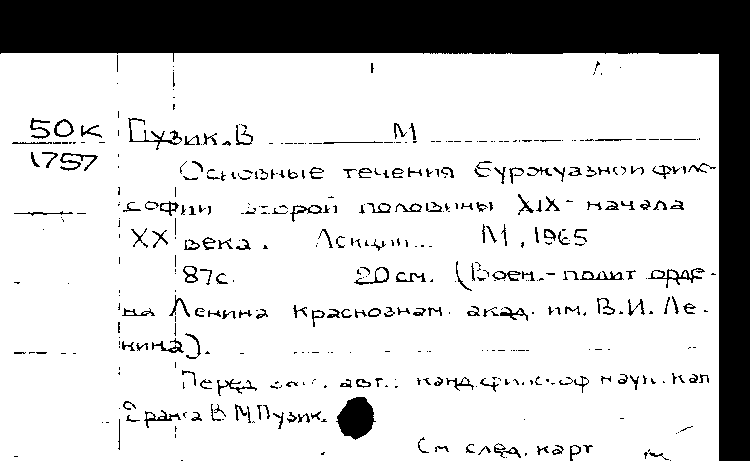 50к Пузик, В М
1757
Основные течения буржуазной фило-
софии второй половины XIX - начала
XX века. Лекции... М, 1965
87с. 20см. (Воен.-полит орде-
на Ленина Краснознам. акад. им. В.И. Ле-
нина).
Перед авт.: канд. философ наук. кап
2 ранга В М Пузик.
См след. карт